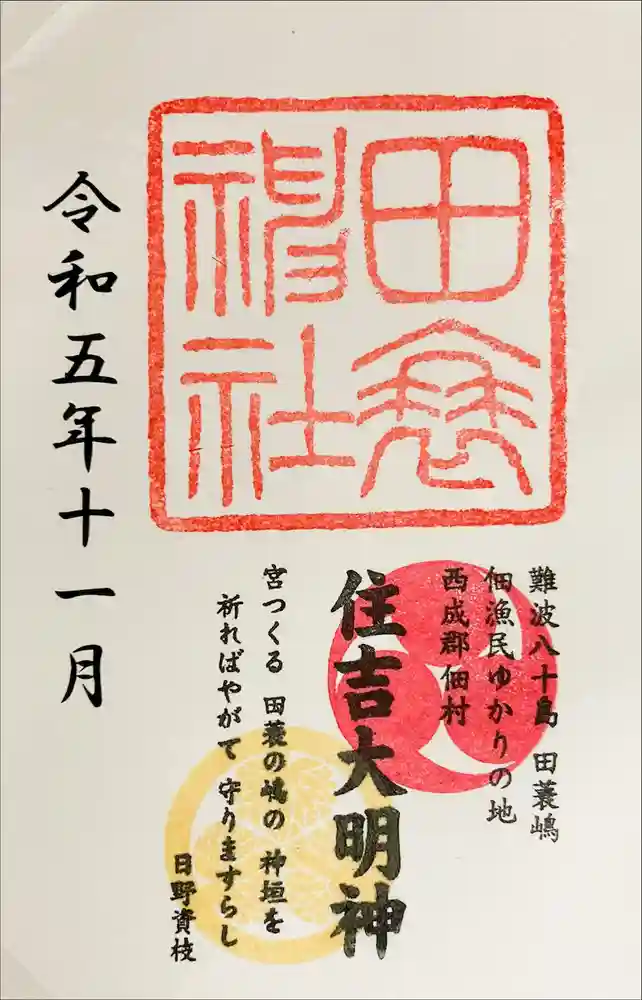 田蓑
神社
難波八十島 田蓑嶋
佃漁民ゆかりの地
西成郡佃村
住吉大明神
宮つくる 田蓑の嶋の 神垣を
祈ればやがて 守りますらし
日野資枝
令和五年十一月